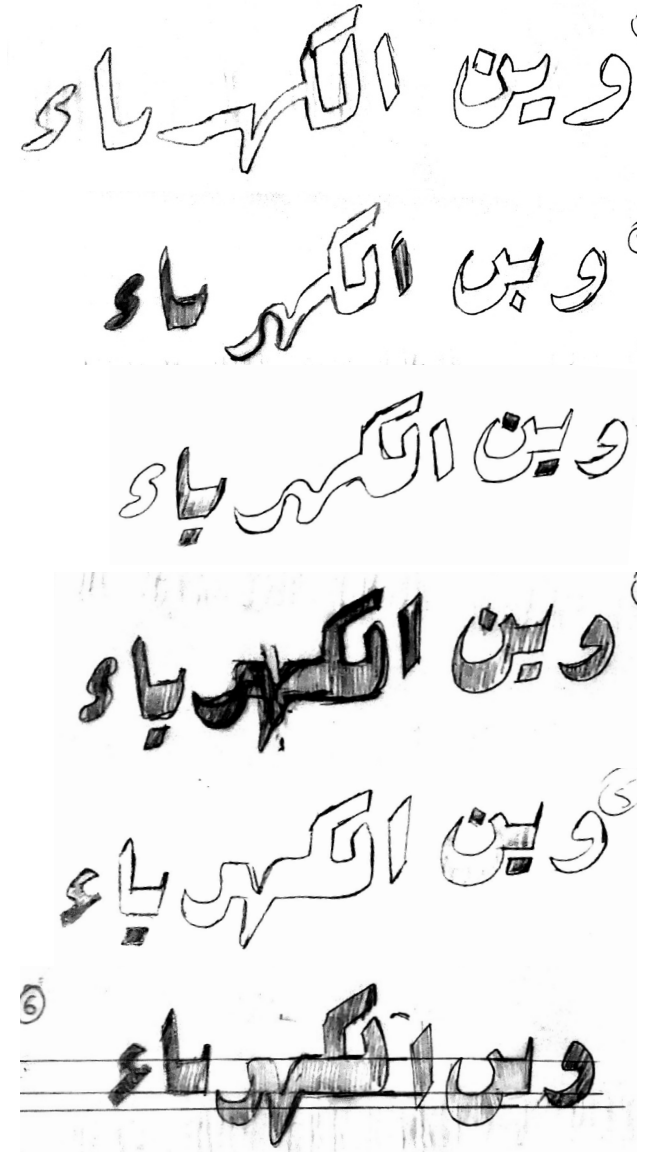 وين الكهرباء
وين الكهرباء
وين الكهرباء
وين الكهرباء
5 وين الكهرباء
6
وين الكهرباء